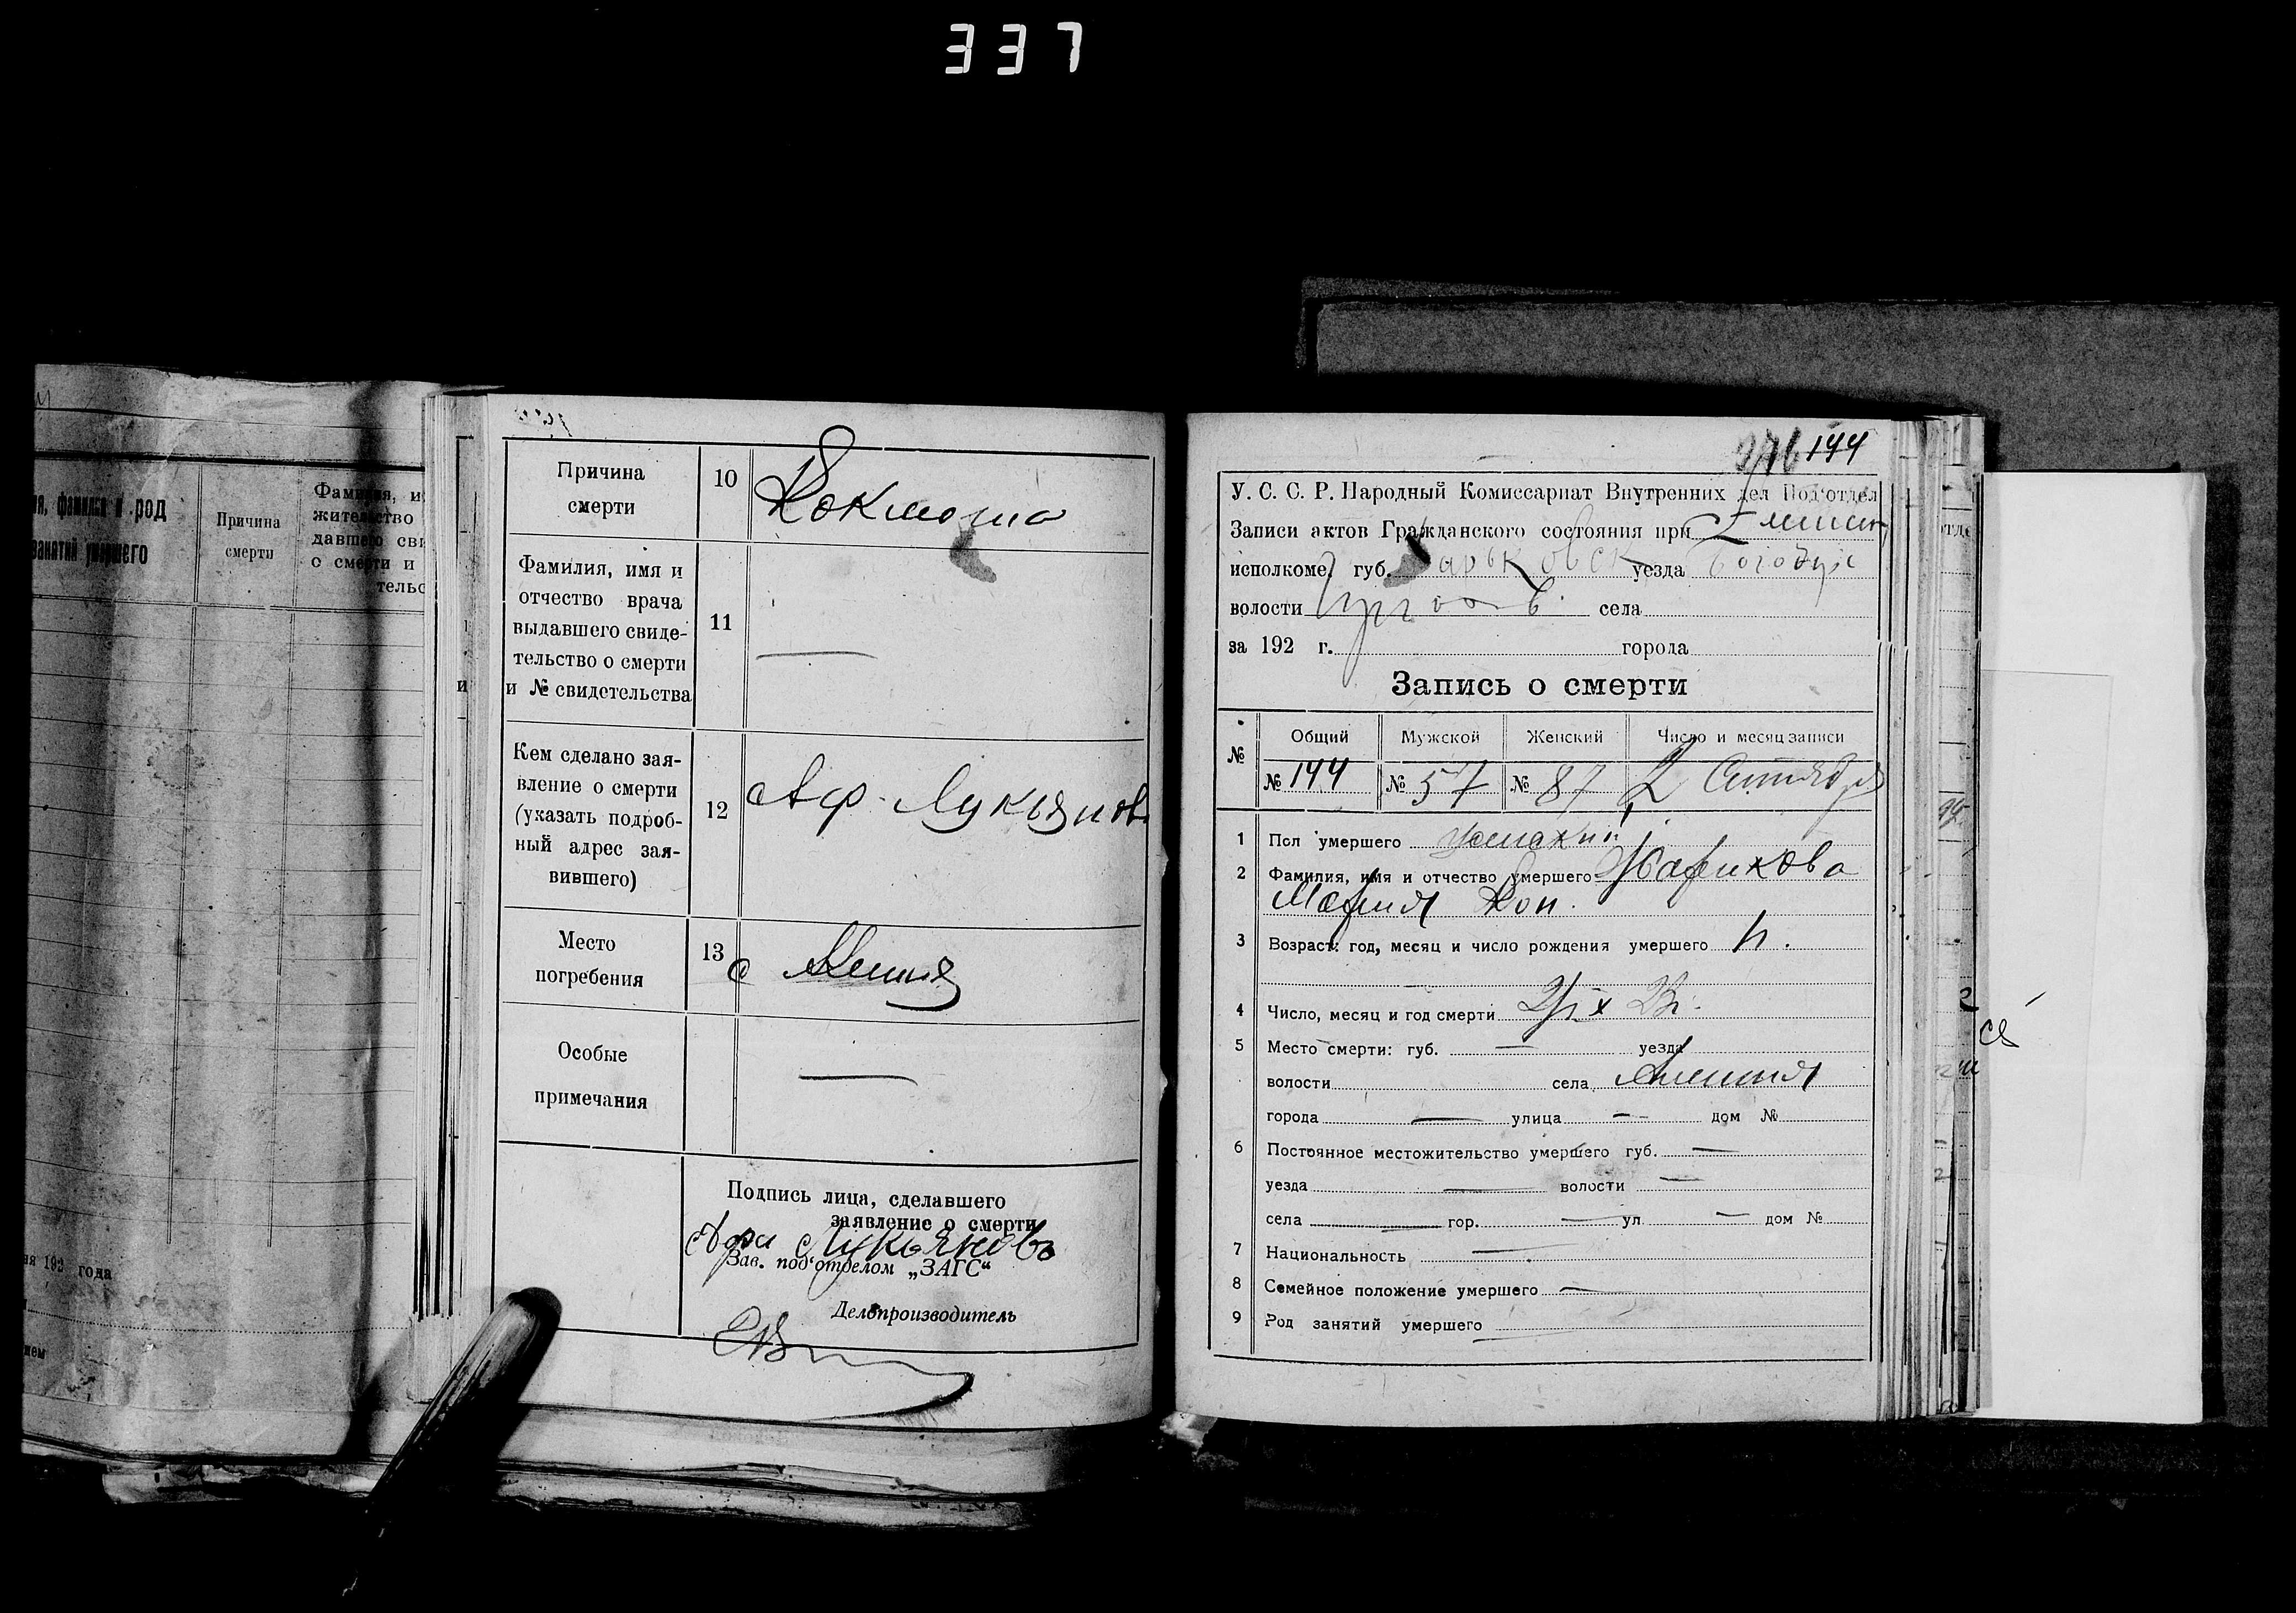 337
ия, фамилия и род
занятий умершего
Причина
смерти
Фамилия, и
жительство
давшего сви
о смерти и
тельс
ия 192 года
Причина
смерти
10
Коклюша
Фамилия, имя и
отчество врача
выдавшего свиде-
тельство о смерти
и № свидетельства
11
—
Кем сделано зая-
вление о смерти
(указать подроб-
ный адрес зая-
вившего)
12
Аф. Лукьянов
Место
погребения
13
с
Особые
примечания
—
Подпись лица, сделавшего
заявление о смерти
Лукьяновъ
Зав. под'отделом „ЗАГС“
Делопроизводитель
276 144
У. С. С. Р. Народный Комиссариат Внутренних дел Под'отдел
Записи актов Гражданского состояния при
исполкоме, губ. Харьковск уезда Богодух
волости села
за 192 г. города
Запись о смерти
№ Общий Мужской Женский Число и месяц записи
№ 144 № 57 № 87 2 Сентября
1 Пол умершего женский
2 Фамилия, имя и отчество умершего Жарикова
Мария
3 Возраст: год, месяц и число рождения умершего
4 Число, месяц и год смерти
5 Место смерти: губ. — уезда
волости села
города — улица — дом №
6 Постоянное местожительство умершего губ. —
уезда — волости —
села — гор. — ул. — дом №
7 Национальность —
8 Семейное положение умершего —
9 Род занятий умершего —